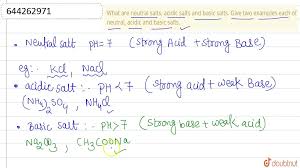 644262971
What are neutral salts, acidic salts and basic salts. Give two examples each of neutral, acidic and basic salts.
• Neutral salt PH=7 (Strong Acid + strong Base)
eg:- KCl, NaCl
• acidic salt :- PH<7 (strong acid + weak Base)
(NH4)2SO4, NH4Cl
• Basic salt :- PH>7 (Strong base + weak acid)
Na2CO3, CH3COONa
doubtnut